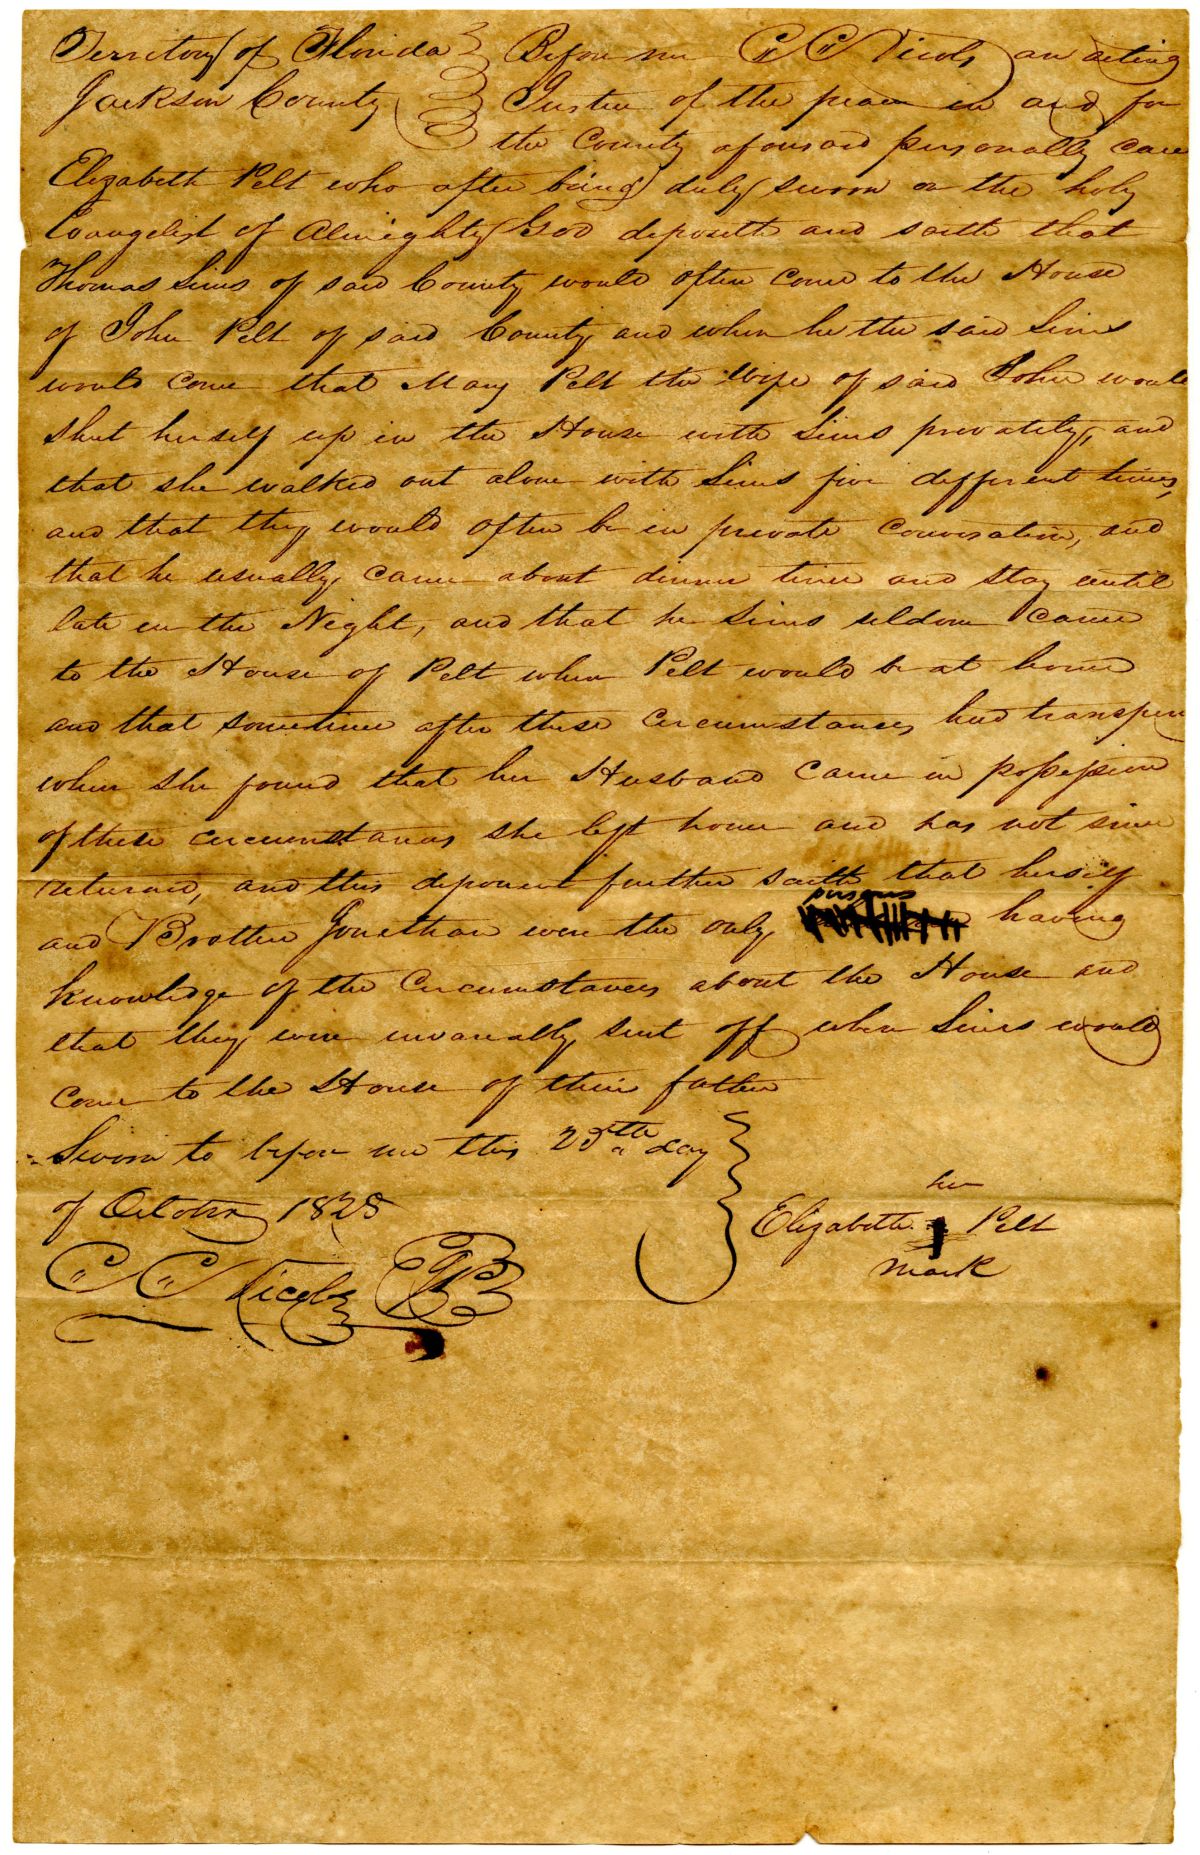 Territory of Florida Before me C. C. Nicols an acting
Jackson County Justice of the peace in and for
the County aforesaid personally came
Elizabeth Pelt who after being duly sworn on the holy
Evangelist of Almighty God deposeth and saith that
Thomas Sims of said County would often come to the House
of John Pelt of said County and when he the said Sims
would come that Mary Pelt the Wife of said John would
shut herself up in the House with Sims privately, and
that she walked out alone with Sims five different times,
and that they would often be in private conversation, and
that he usually came about dinner time and stay until
late in the Night, and that he Sims seldom came
to the House of Pelt when Pelt would be at home
and that sometime after these circumstances had transpen
when she found that her Husband came in possession
of these circumstances she left home and has not since
returned, and this deponent further saith that herself
and Brother Jonathan were the only persons having
knowledge of the Circumstances about the House and
that they were invareally sent off when Sims would
come to the House of their father
Sworn to before me this 25th day
of October 1828
her
Elizabeth Pelt
mark
C. C. Nicols JP